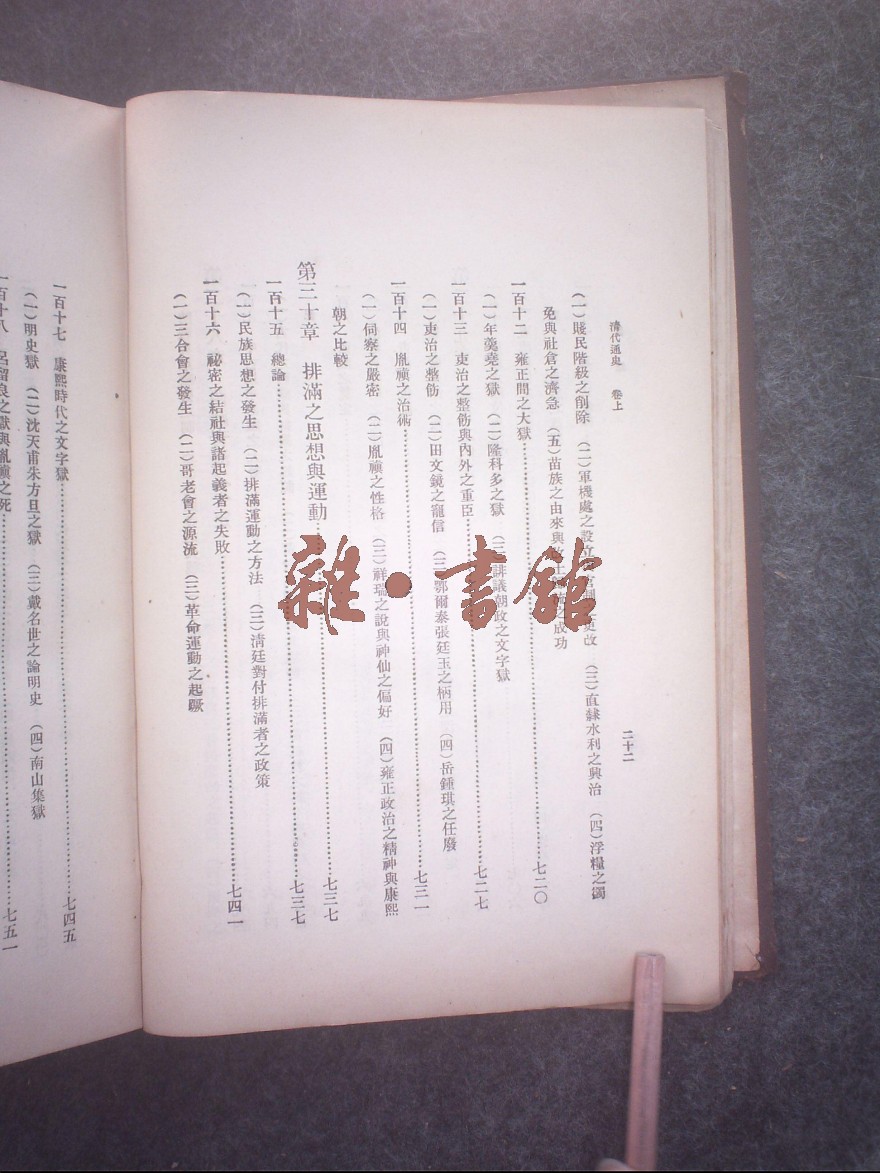 清代通史 卷上 二十二
(一)賤民階級之削除 (二)軍機處之設立 更改 (三)直隸水利之興治 (四)浮糧之蠲
免與社倉之濟急 (五)苗族之由來與 成功
一百十二 雍正間之大獄……七二〇
(一)年羹堯之獄 (二)隆科多之獄 (三)誹議朝政之文字獄
一百十三 吏治之整飭與內外之重臣……七二七
(一)吏治之整飭 (二)田文鏡之寵信 (三)鄂爾泰張廷玉之柄用 (四)岳鍾琪之任廢
一百十四 胤禛之治術……七三一
(一)伺察之嚴密 (二)胤禛之性格 (三)祥瑞之說與神仙之偏好 (四)雍正政治之精神與康熙
朝之比較
第三十章 排滿之思想與運動……七三七
一百十五 總論……七三七
(一)民族思想之發生 (二)排滿運動之方法 (三)清廷對付排滿者之政策
一百十六 祕密之結社與諸起義者之失敗……七四一
(一)三合會之發生 (二)哥老會之源流 (三)革命運動之起蹶
一百十七 康熙時代之文字獄……七四五
(一)明史獄 (二)沈天甫朱方旦之獄 (三)戴名世之論明史 (四)南山集獄
一百十八 呂留良之獄與胤禛之死……七五一
雜·書館